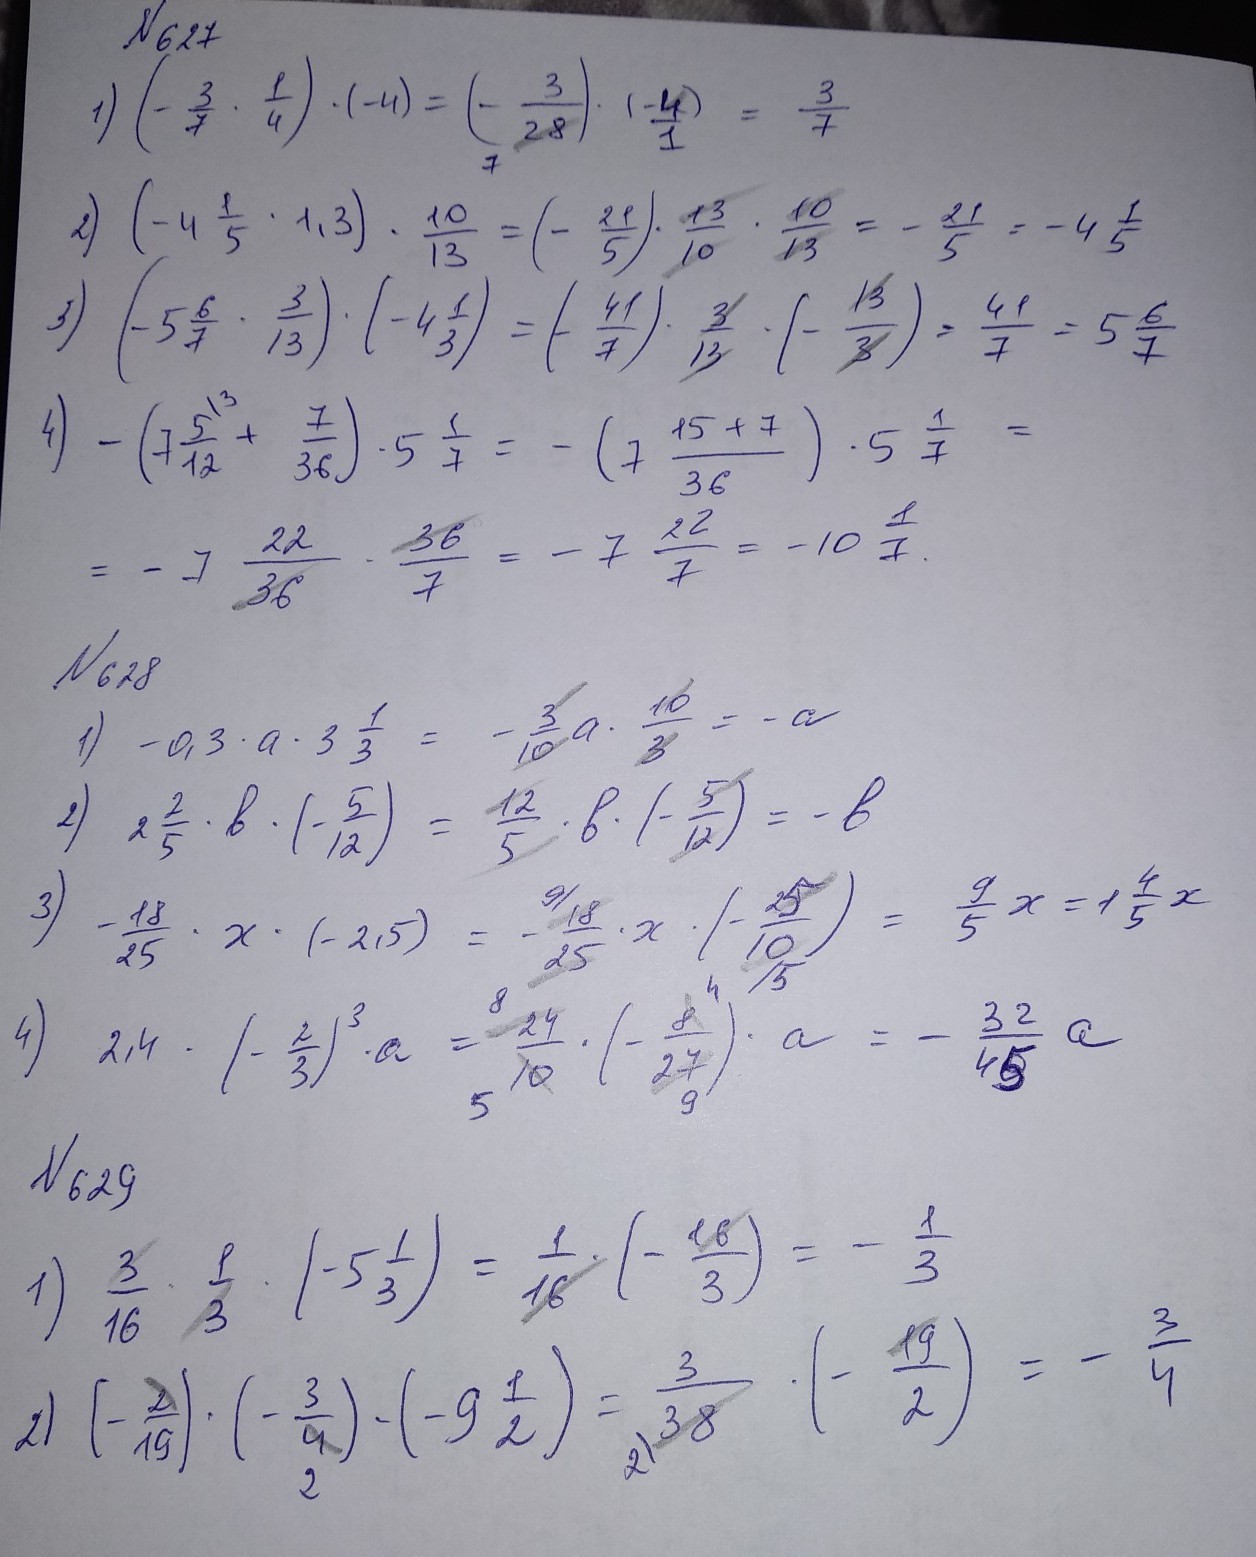 N627
1) (- 3/7 · 1/4) · (-4) = (- 3/28 7) · (-4/1) = 3/7
2) (-4 1/5 · 1,3) · 10/13 = (- 21/5) · 13/10 · 10/13 = - 21/5 = -4 1/5
3) (-5 6/7 · 3/13) · (-4 1/3) = (- 41/7) · 3/13 · (- 13/3) = 41/7 = 5 6/7
4) - (7 5/12 \3 + 7/36) · 5 1/7 = - (7 (15+7)/36) · 5 1/7 =
= - 7 22/36 · 36/7 = - 7 22/7 = -10 1/7.
N628
1) -0,3 · a · 3 1/3 = - 3/10 a · 10/3 = -a
2) 2 2/5 · b · (- 5/12) = 12/5 · b · (- 5/12) = - b
3) - 18/25 · x · (-2,5) = - 9/ 18/25 · x · (- 25/10 /5) = 9/5 x = 1 4/5 x
4) 2,4 · (- 2/3)³ · a = 8 24/10 5 · (- 8/27 4 9) · a = - 32/45 a
N629
1) 3/16 · 1/3 · (-5 1/3) = 1/16 · (- 16/3) = - 1/3
2) (- 2/19) · (- 3/4 2) · (-9 1/2) = 3/38 2\ · (- 19/2) = - 3/4